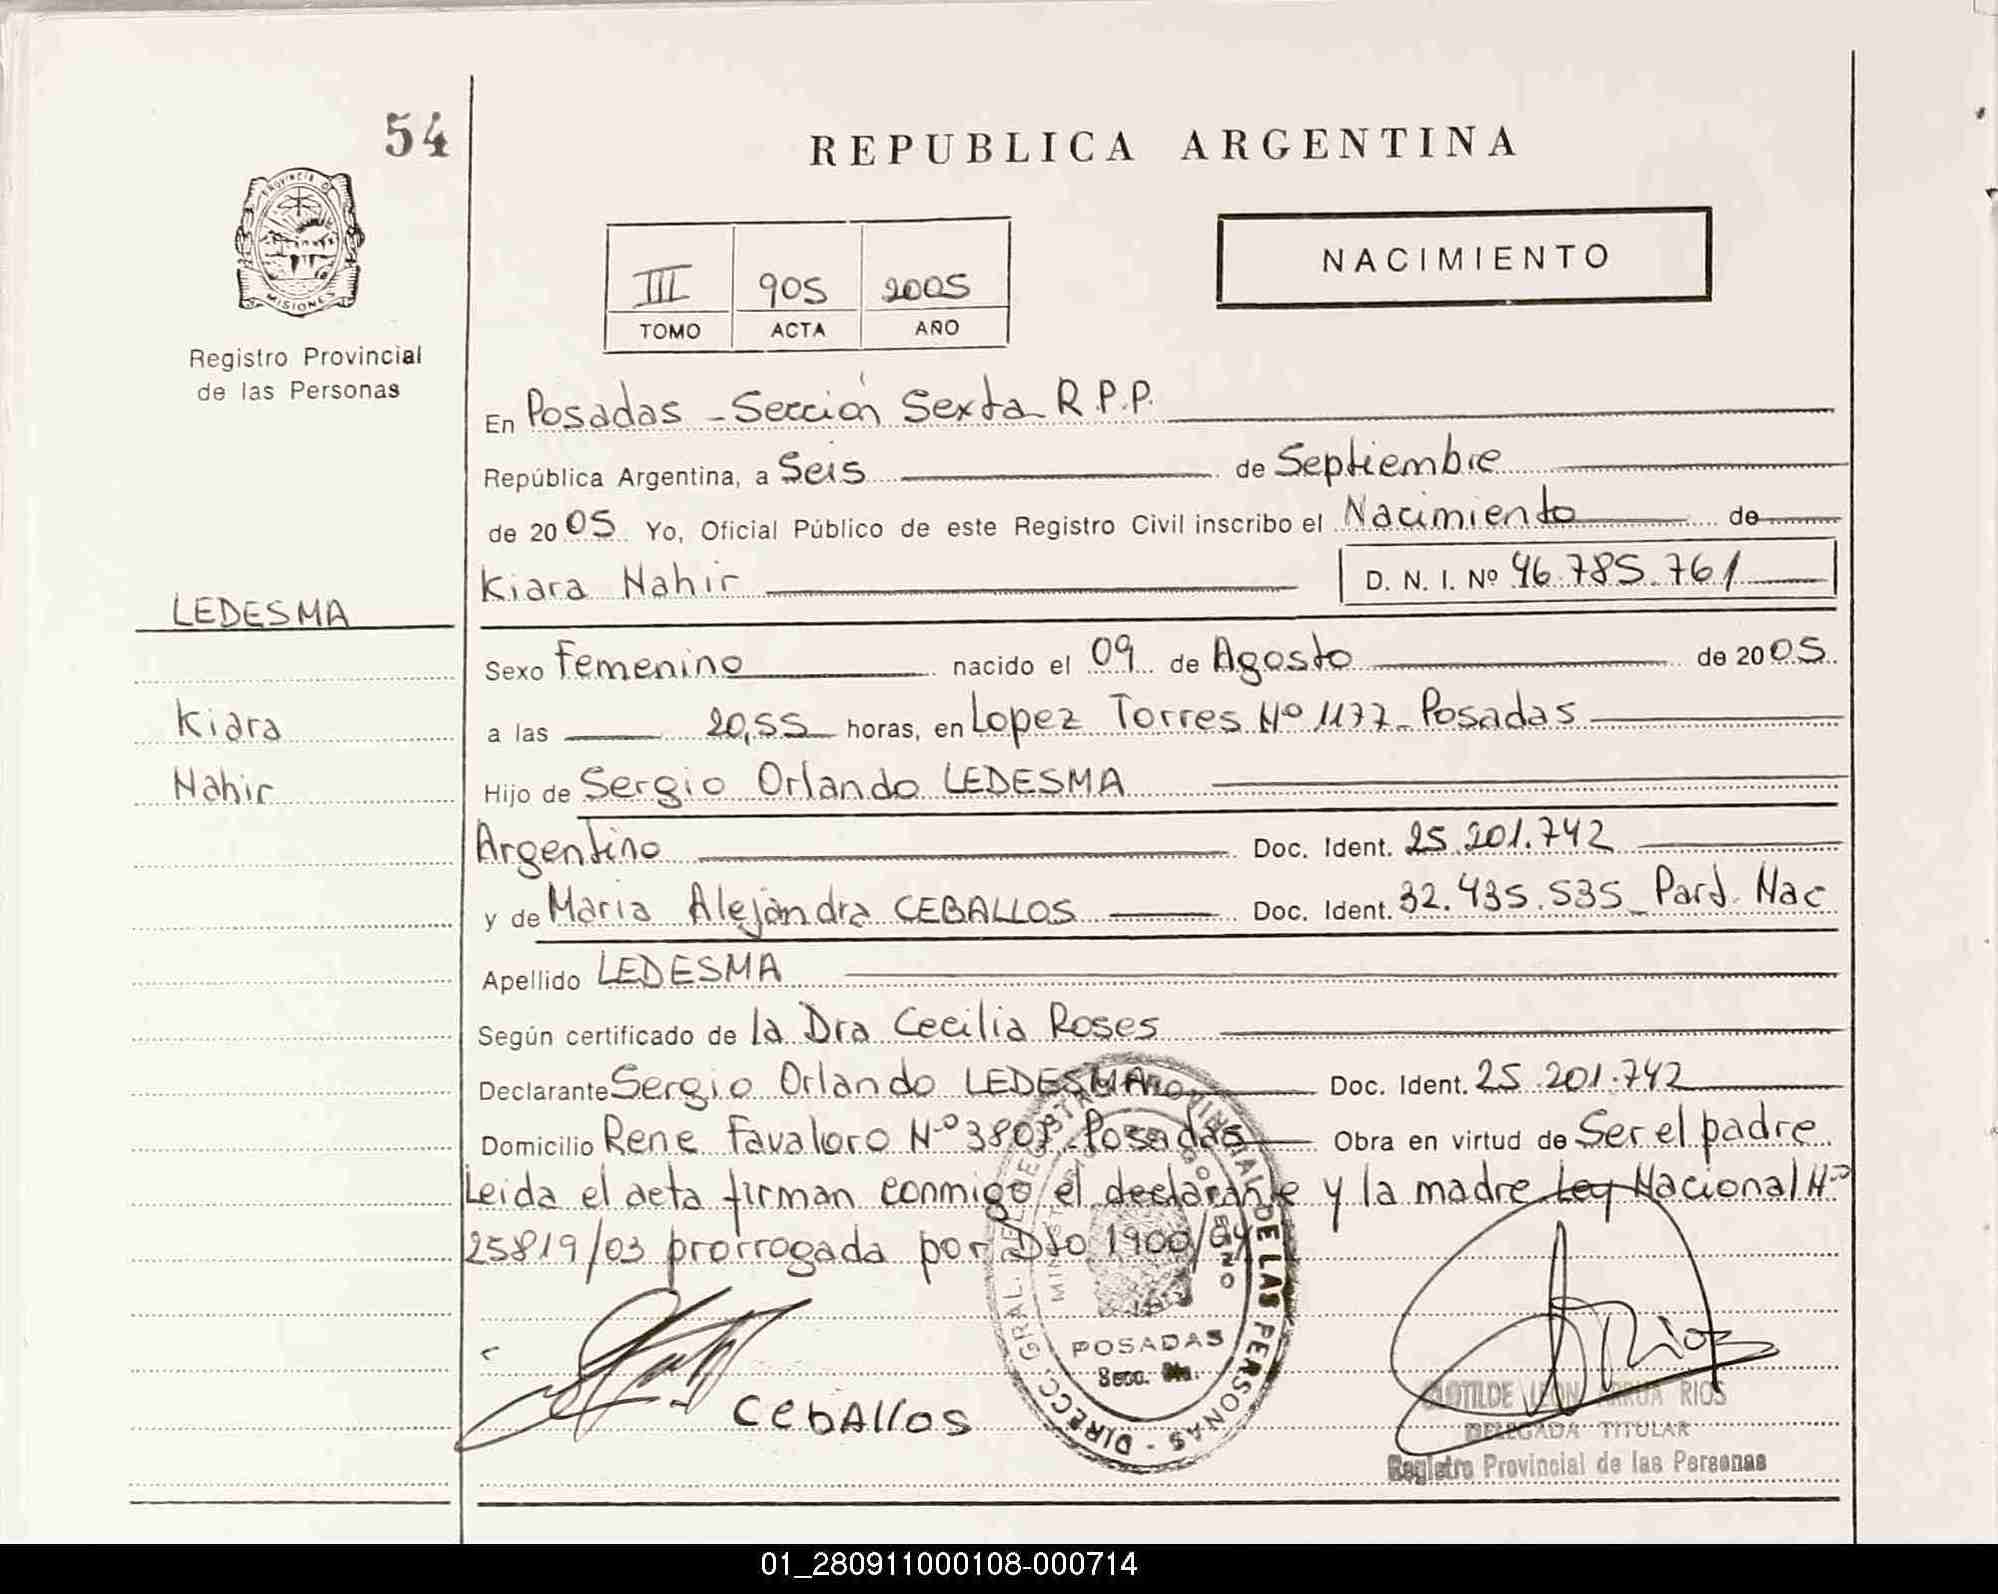 54
REPUBLICA ARGENTINA
PROVINCIA D
MISIONES
Registro Provincial
de las Personas
III 905 2005
TOMO ACTA AÑO
NACIMIENTO
En Posadas - Sección Sexta R.P.P.
República Argentina, a Seis de Septiembre
de 2005 Yo, Oficial Público de este Registro Civil inscribo el Nacimiento de
Kiara Nahir D. N. I. Nº 46.785.761
LEDESMA
Sexo Femenino nacido el 09 de Agosto de 2005
Kiara
a las 20,55 horas, en Lopez Torres Nº 1177 - Posadas
Nahir
Hijo de Sergio Orlando LEDESMA
Argentino Doc. Ident. 25.201.742
y de Maria Alejandra CEBALLOS Doc. Ident. 32.435.535 - Part. Nac
Apellido LEDESMA
Según certificado de la Dra Cecilia Roses
Declarante Sergio Orlando LEDESMA Doc. Ident. 25.201.742
Domicilio Rene Favaloro Nº Posadas Obra en virtud de Ser el padre
Leida el acta firman conmigo el declarante y la madre Ley Nacional Nº
25819/03 prorrogada por Dto 1900/04
DIRECC. GRAL. DEL REGISTRO PROVINCIAL DE LAS PERSONAS
POSADAS
Secc.
CEbAllos
Rios
CLOTILDE RIOS
DELEGADA TITULAR
Registro Provincial de las Personas
01_280911000108-000714